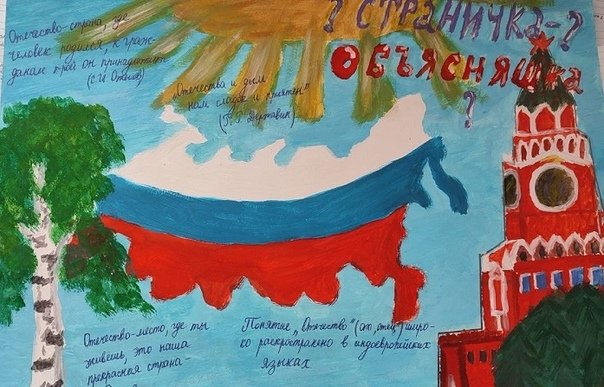 ? СТРАНИЧКА-?
ОБЪЯСНЯШКА
?
Отечество-страна, где
человек родился, к граж-
данам к-рой он принадлежит
(С.И Ожегов)
„Отечества и дым
нам сладок и приятен"
(Г.Р Державин)
Отечество-место, где ты
живешь, это наша
прекрасная страна-
Понятие „Отечество" (от „отец") широ-
ко распространено в индоевропейских
языках